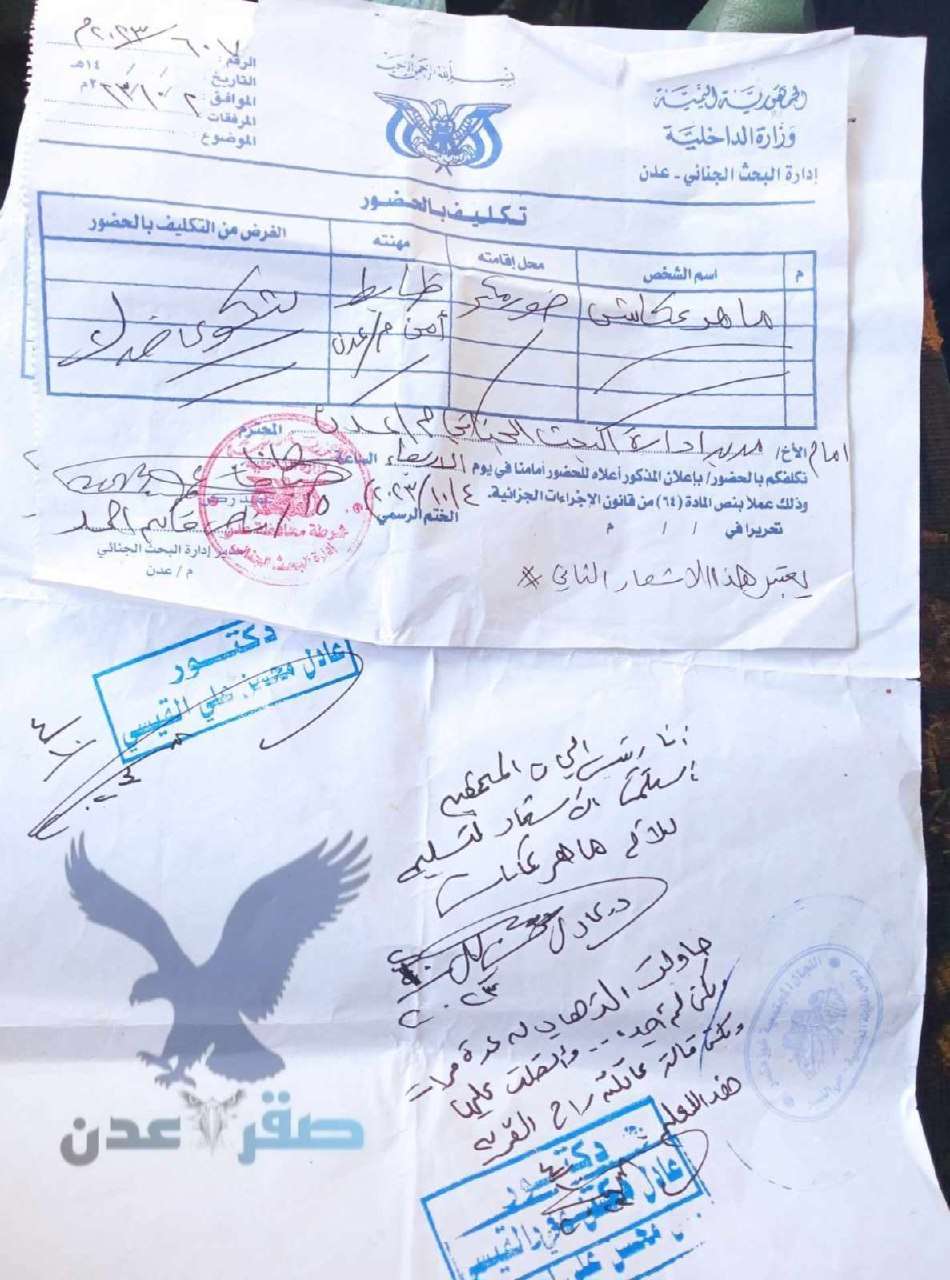 بسم الله الرحمن الرحيم
الجمهورية اليمنية
وزارة الداخلية
إدارة البحث الجنائي - عدن
الرقم: ٦٠٧ / ٢٠٢٣م
التاريخ: / / ١٤هـ
الموافق: ٢ / ١٠ / ٢٣ ٢م
المرفقات:
الموضوع:
تكليف بالحضور
م اسم الشخص محل إقامته مهنته الغرض من التكليف بالحضور
ماهر عكاشي خورمكسر ظابط شكوى ضدك
أمن م/عدن
امام الأخ/ مدير إدارة البحث الجنائي م/عدن المحترم
نكلفكم بالحضور/ بإعلان المذكور أعلاه للحضور أمامنا في يوم الاربعاء الساعة
٤/١٠/٢٠٢٣
وذلك عملا بنص المادة (٦٤) من قانون الإجراءات الجزائية. الختم الرسمي
تحريرا في / / م
قاسم احمد
مدير إدارة البحث الجنائي
م / عدن
شرطة محافظة عدن
إدارة البحث الجنائي
يعتبر هذا الاشعار الثاني #
دكتور
عادل محسن علي القيسي
انا رئيس
استلمت لتسليمه
للأخ ماهر
د. عادل
٢٠٢٣
حاولت الذهاب له عدة مرات
ولكن لم أجده .. واتصلت عليه
ولكن قالة عائلته راح القريه
صقر عدن
دكتور
عادل محسن علي القيسي